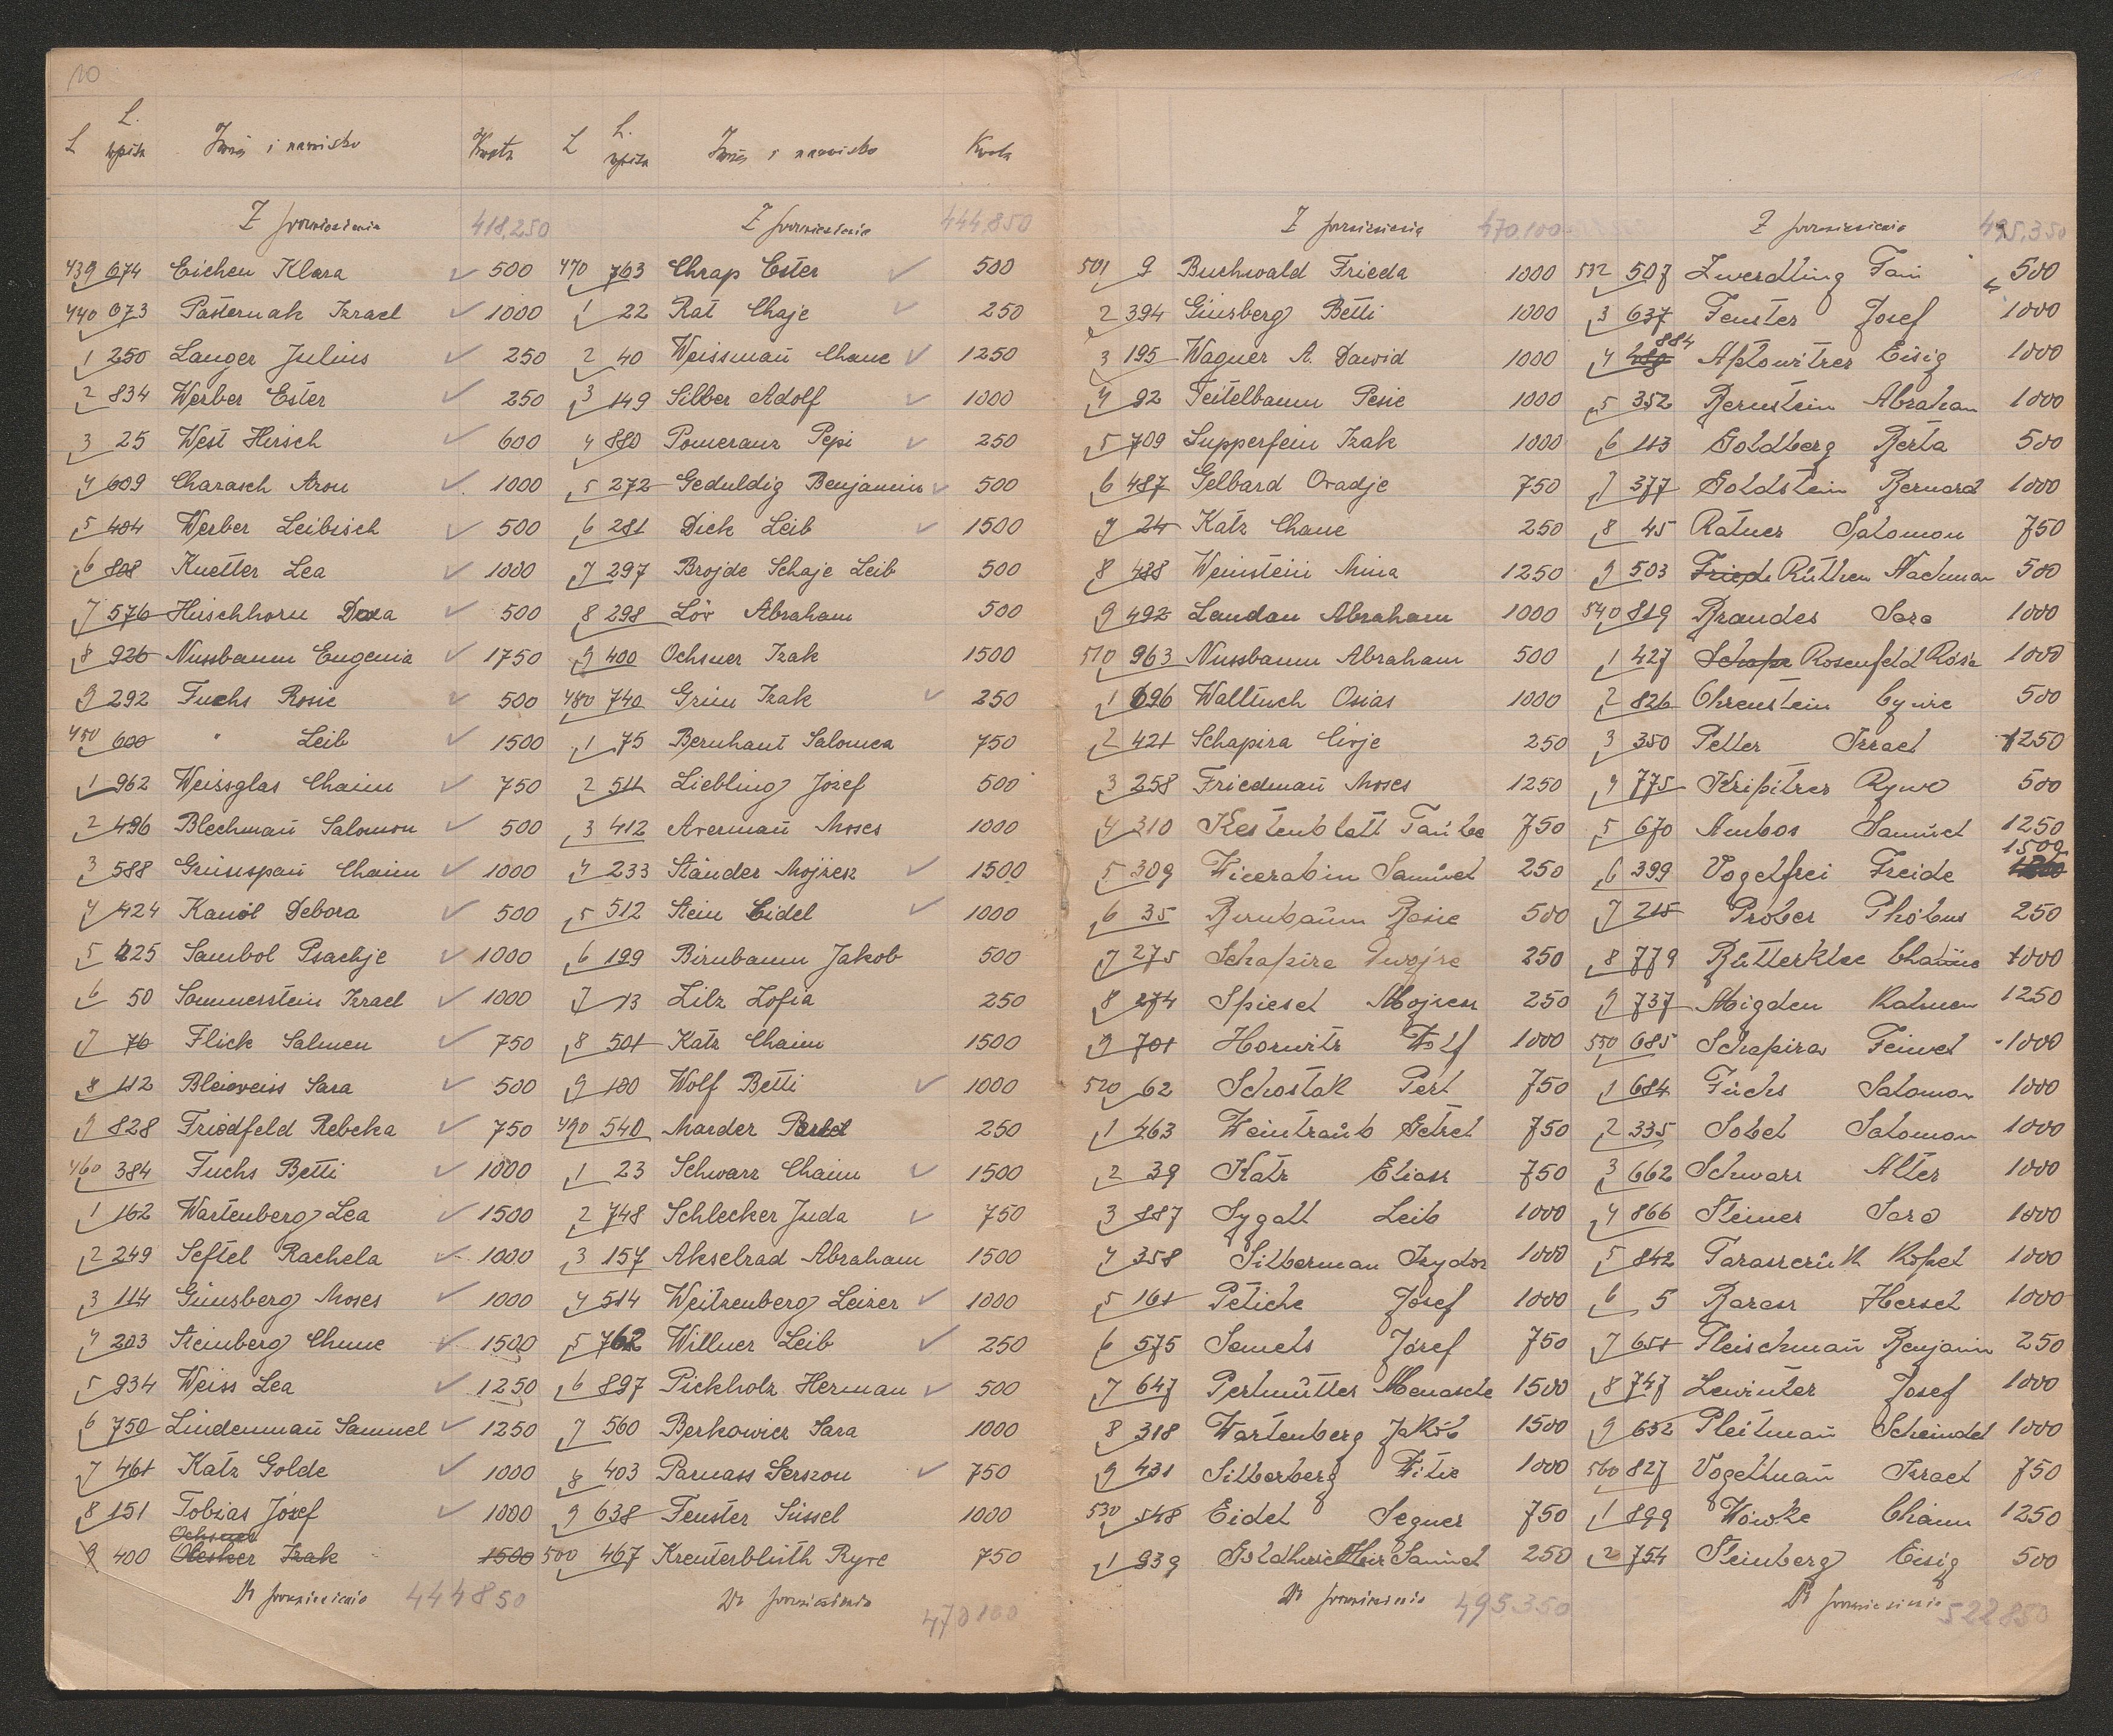 10
L L. wpisu Imię i nazwisko Kwota L L. wpisu Imię i nazwisko Kwota
Z przeniesienia 418,250
439 674 Eichen Klara 500
440 673 Pasternak Izrael 1000
1 250 Langer Julius 250
2 834 Werber Ester 250
3 25 West Hirsch 600
4 609 Charasch Aron 1000
5 404 Werber Leibisch 500
6 808 Knetler Lea 1000
7 576 Hirschhorn Dora 500
8 926 Nussbaum Eugenia 1750
9 292 Fuchs Rosie 500
450 600 " Leib 1500
1 962 Weissglas Chaim 750
2 496 Blechmañ Salomon 500
3 588 Grünspañ Chaim 1000
4 424 Kanöl Debora 500
5 225 Sambol Psachje 1000
6 50 Sommerstein Izrael 1000
7 76 Flick Salmen 750
8 112 Bleiweiss Sara 500
9 828 Friedfeld Rebeka 750
460 384 Fuchs Betti 1000
1 162 Wartenberg Lea 1500
2 249 Seftel Rachela 1000
3 114 Günsberg Moses 1000
4 203 Steinberg Chune 1500
5 934 Weiss Lea 1250
6 750 Lindenmañ Samuel 1250
7 461 Katz Golde 1000
8 151 Tobias Józef 1000
Ochsner
9 400 Olesker Izak 1500
Do przeniesienia 444850
Z przeniesienia 444,850
470 763 Chrap Ester 500
1 22 Rat Chaje 250
2 40 Weissmañ Chane 1250
3 149 Silber Adolf 1000
4 880 Pomeranz Pepi 250
5 272 Geduldig Benjamin 500
6 281 Dick Leib 1500
7 297 Brojde Schaje Leib 500
8 298 Löv Abraham 500
9 400 Ochsner Izak 1500
480 740 Grün Izak 250
1 75 Bernhaut Salomea 750
2 511 Liebling Józef 500
3 412 Avermañ Moses 1000
4 233 Ständer Mojżesz 1500
5 512 Stein Eidel 1000
6 199 Birnbaum Jakob 500
7 13 Lilz Zofia 250
8 501 Katz Chaim 1500
9 180 Wolf Betti 1000
490 540 Marder Perbel 250
1 23 Schwarz Chaim 1500
2 748 Schlecker Juda 750
3 157 Akselrad Abraham 1500
4 514 Weitzenberg Leizer 1000
5 762 Willner Leib 250
6 897 Pickholz Herman 500
7 560 Berkowicz Sara 1000
8 403 Parnass Gerszon 750
9 638 Fenster Süssel 1000
500 467 Kreuterblüth Ryve 750
Do przeniesienia 470100
Z przeniesienia 470,100
501 9 Buchwald Frieda 1000
2 394 Günsberg Betti 1000
3 195 Wagner A. Dawid 1000
4 92 Teitelbaum Pesie 1000
5 709 Supperfein Izak 1000
6 487 Gelbard Ovadje 750
7 24 Katz Chane 250
8 488 Weinstein Mina 1250
9 492 Landau Abraham 1000
510 963 Nussbaum Abraham 500
1 696 Walltuch Osias 1000
2 421 Schapira Civje 250
3 258 Friedmañ Moses 1250
4 310 Kestenblatt Taube 750
5 309 Wieerabin Samuel 250
6 35 Birnbaum Rosie 500
7 275 Schapira Dwojre 250
8 274 Spiesel Mojżesz 250
9 701 Horwitz Wolf 1000
520 62 Schostak Perl 750
1 463 Weintraub Getzel 750
2 39 Katz Eliasz 750
3 887 Sygall Leib 1000
4 358 Silberman Izydor 1000
5 161 Peliche Józef 1000
6 575 Semels Józef 750
7 647 Perlmutter Menasche 1500
8 318 Wartenberg Jakób 1500
9 431 Silberberg Witie 1000
530 548 Eidel Segner 750
1 939 Goldhirsch Meir Samuel 250
Do przeniesienia 495.350
Z przeniesienia 495.350
532 507 Zwerdling Fani 500
3 637 Fenster Josef 1000
4 480 884 Aptowitzer Eisig 1000
5 352 Bernstein Abraham 1000
6 113 Goldberg Berta 500
7 377 Goldstein Bernard 1000
8 45 Ratner Salomon 750
9 503 Friede Rüthen Nachman 500
540 819 Brandes Sara 1000
1 427 Schapi Rosenfeld Róża 1000
2 826 Ohrenstein Cywie 500
3 350 Petter Izrael 1250
4 775 Kripitzer Rywe 500
5 670 Ambos Samuel 1250
6 399 Vogelfrei Freide 1500
7 215 Prober Phöbus 250
8 779 Butterklee Chanine 1000
9 737 Migden Kalmen 1250
550 685 Schapira Feiwel 1000
1 684 Fuchs Salomon 1000
2 335 Sobel Salomon 1000
3 662 Schwarz Alter 1000
4 866 Steiner Sara 1000
5 842 Taraszczuk Kopel 1000
6 5 Barasz Hersch 1000
7 651 Fleischmañ Benjamin 250
8 747 Lewinter Josef 1000
9 632 Pleitmañ Scheindel 1000
560 827 Vogelmañ Israel 750
1 899 Wówke Chaim 1250
2 754 Steinberg Eisig 500
Do przeniesienia 522850